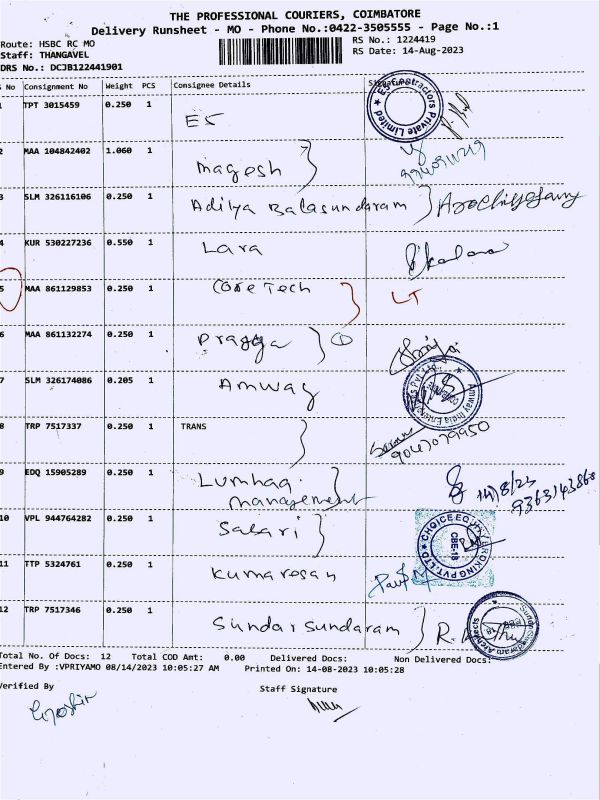 THE PROFESSIONAL COURIERS, COIMBATORE
Delivery Runsheet - MO - Phone No.:0422-3505555 - Page No.:1
Route: HSBC RC MO
RS No.: 1224419
Staff: THANGAVEL
RS Date: 14-Aug-2023
DRS No.: DCJB122441901
No Consignment No Weight PCS Consignee Details
TPT 3015459 0.250 1 E5
2 MAA 104842402 1.060 1 Magesh
3 SLM 326116106 0.250 1 Aditya Balasundaram
4 KUR 530227236 0.550 1 Lara
5 MAA 861129853 0.250 1 Core Tech LT
6 MAA 861132274 0.250 1 Pragya 1
7 SLM 326174086 0.205 1 Amway
8 TRP 7517337 0.250 1 TRANS 9047079950
9 EDQ 15905289 0.250 1 management 14/8/23
9363143868
10 VPL 944764282 0.250 1 CHOICE EQUITY BROKING PVT. LTD CBE-18
11 TTP 5324761 0.250 1 Kumaresan
12 TRP 7517346 0.250 1 Sundar Sundaram
Total No. Of Docs: 12 Total COD Amt: 0.00 Delivered Docs: Non Delivered Docs:
Entered By :VPRIYAMO 08/14/2023 10:05:27 AM Printed On: 14-08-2023 10:05:28
Verified By Staff Signature